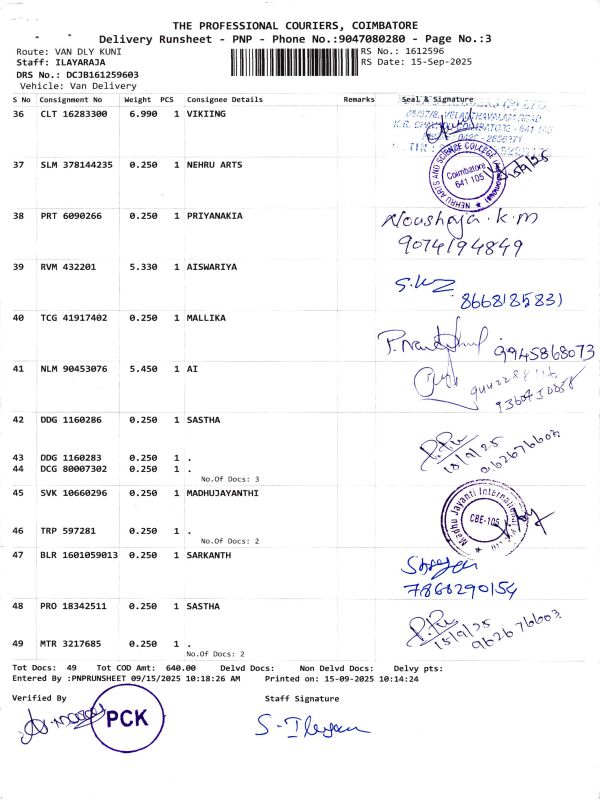 THE PROFESSIONAL COURIERS, COIMBATORE
Delivery Runsheet - PNP - Phone No.:9047080280 - Page No.:3
Route: VAN DLY KUNI
RS No.: 1612596
Staff: ILAYARAJA
RS Date: 15-Sep-2025
DRS No.: DCJB161259603
Vehicle: Van Delivery
S No Consignment No Weight PCS Consignee Details Remarks Seal & Signature
36 CLT 16283300 6.990 1 VIKIING
37 SLM 378144235 0.250 1 NEHRU ARTS
NEHRU ARTS AND SCIENCE COLLEGE
Coimbatore
641 105
38 PRT 6090266 0.250 1 PRIYANAKIA
K.M
9074194849
39 RVM 432201 5.330 1 AISWARIYA
8668185831
40 TCG 41917402 0.250 1 MALLIKA
9945868073
41 NLM 90453076 5.450 1 AI
42 DDG 1160286 0.250 1 SASTHA
15/9/25
962676603
43 DDG 1160283 0.250 1 .
44 DCG 80007302 0.250 1 .
No.Of Docs: 3
45 SVK 10660296 0.250 1 MADHUJAYANTHI
Madhu Jayanti International
CBE-105
46 TRP 597281 0.250 1 .
No.Of Docs: 2
47 BLR 1601059013 0.250 1 SARKANTH
7868290154
48 PRO 18342511 0.250 1 SASTHA
15/9/25
9626766603
49 MTR 3217685 0.250 1 .
No.Of Docs: 2
Tot Docs: 49 Tot COD Amt: 640.00 Delvd Docs: Non Delvd Docs: Delvy pts:
Entered By :PNPRUNSHEET 09/15/2025 10:18:26 AM Printed on: 15-09-2025 10:14:24
Verified By Staff Signature
PCK